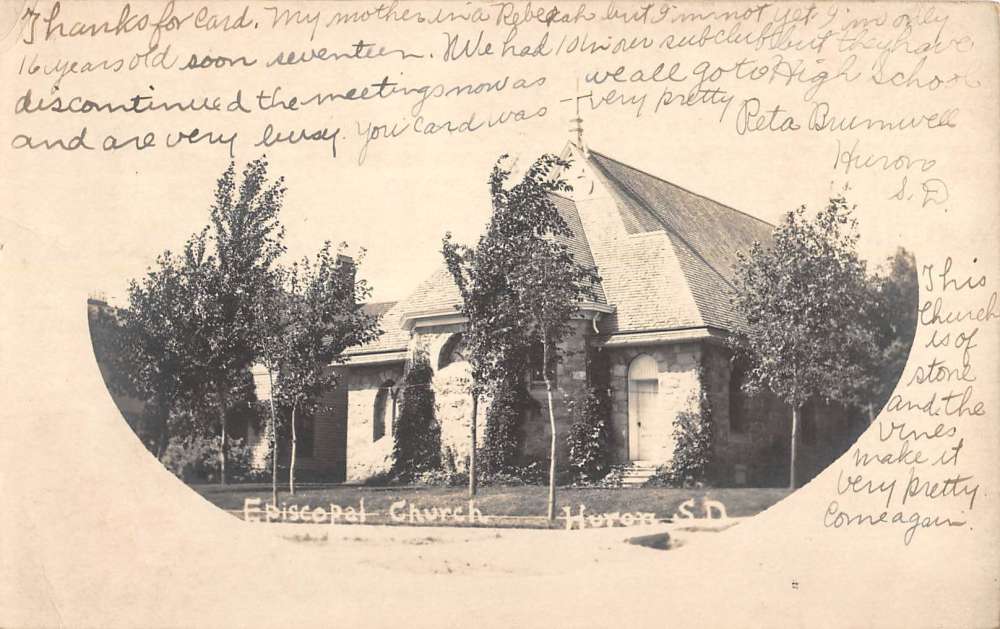 Thanks for Card. My mother is a Rebekah but I'm not yet I'm only
16 years old soon seventeen. We had 10 in our subclub but they have
discontinued the meetings now as we all go to High School
and are very busy. You card was very pretty
Reta Brumwell
Huron
S.D.
This
Church
is of
stone
and the
vines
make it
very pretty.
Come again.
Episcopal Church Huron S D